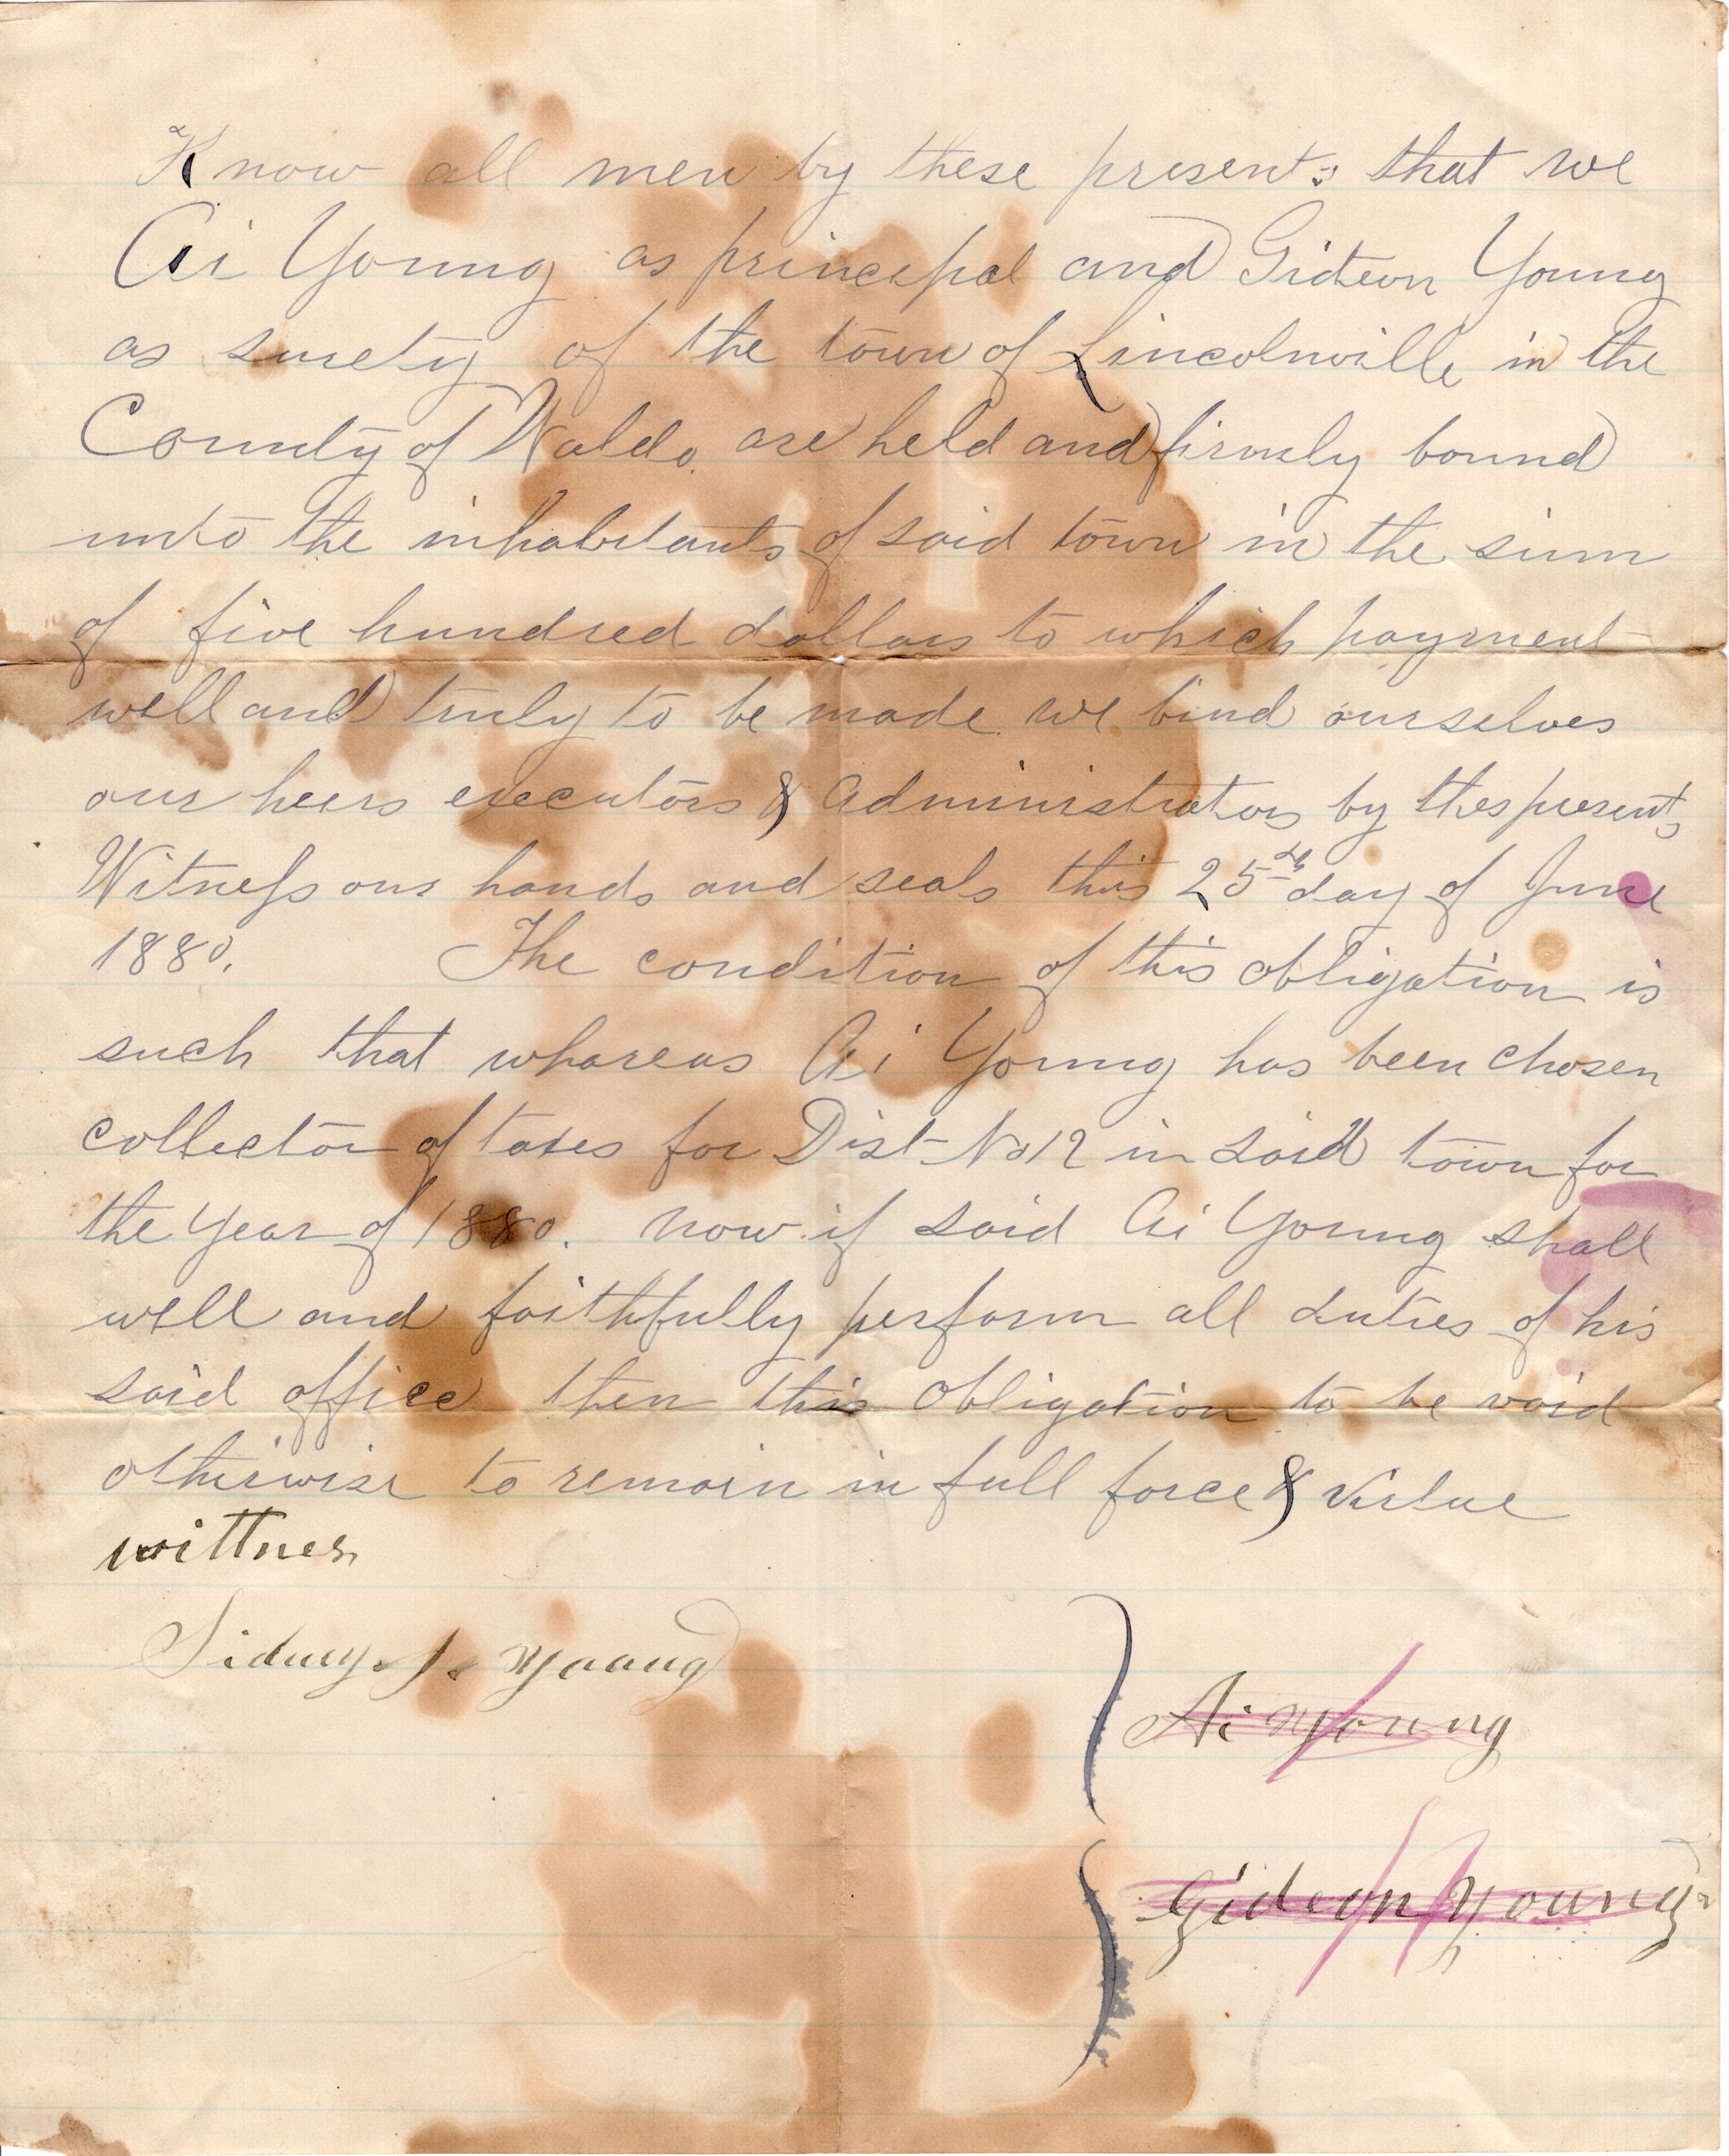 Know all men by these presents that we
Ai Young as principal and Gideon Young
as surety of the town of Lincolnville in the
County of Waldo are held and firmly bound
unto the inhabitants of said town in the sum
of five hundred dollars to which payment
well and truly to be made we bind ourselves
our heers executors & Administrators by thes presents
Witness our hands and seals this 25th day of June
1880. The condition of this obligation is
such that whareas Ai Young has been chosen
collector of taxes for Dist No 12 in said town for
the year of 1880. now if said Ai Young shall
well and faithfully perform all duties of his
said office then this obligation to be void
otherwise to remain in full force & virtue
wittness
Sidney J. Young
Ai Young
Gideon Young